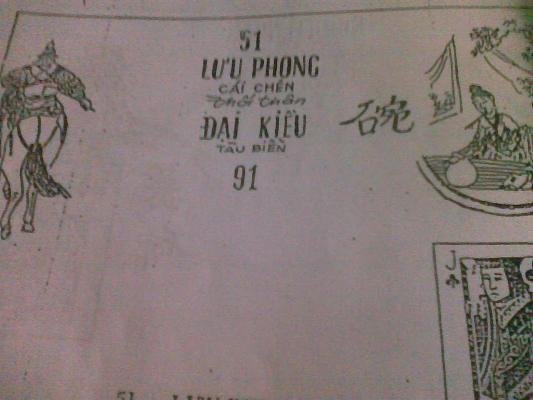 51
LƯU PHONG
CÁI CHÉN
thổi thần
ĐẠI KIỀU
TÀU BIỂN
91
J
51